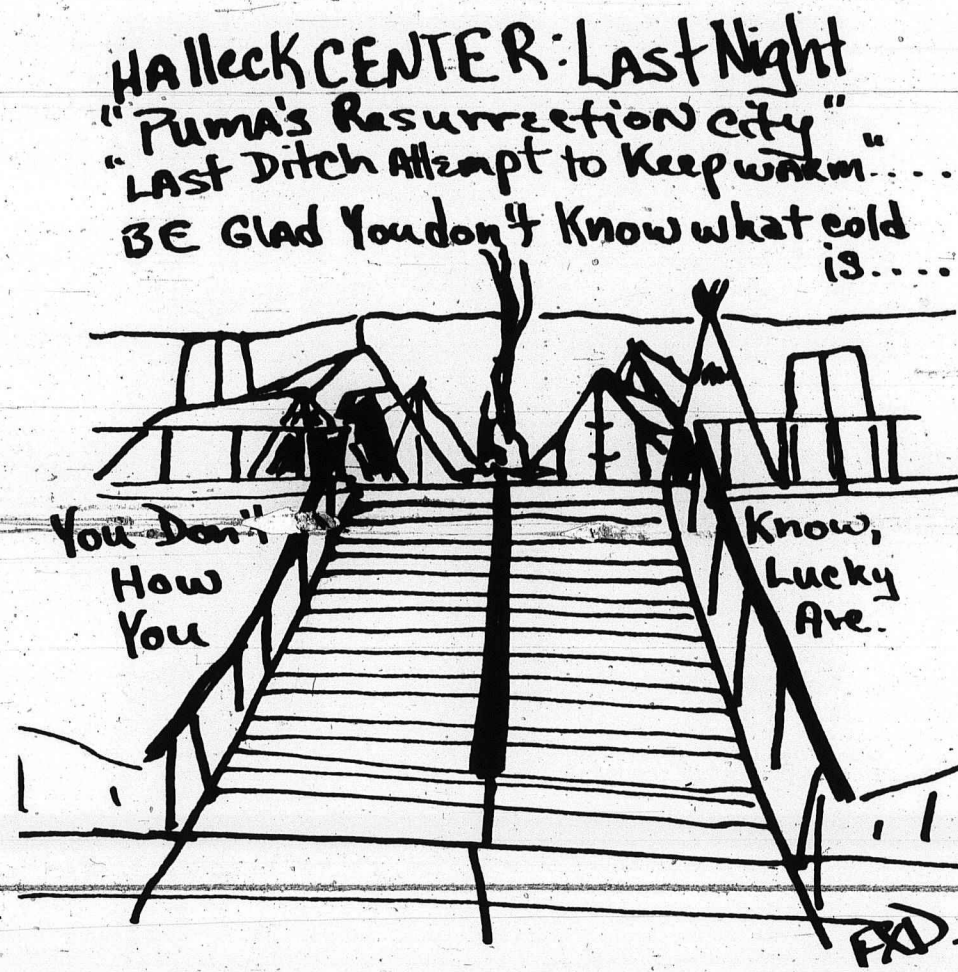 HAlleck CENTER: LAst Night
"PUMA's Resurrection city"
"LAST Ditch Attempt to Keep WARM"....
BE GlAd You don't Know what cold
is....
You Don't Know,
How Lucky
You Are.
FXD.